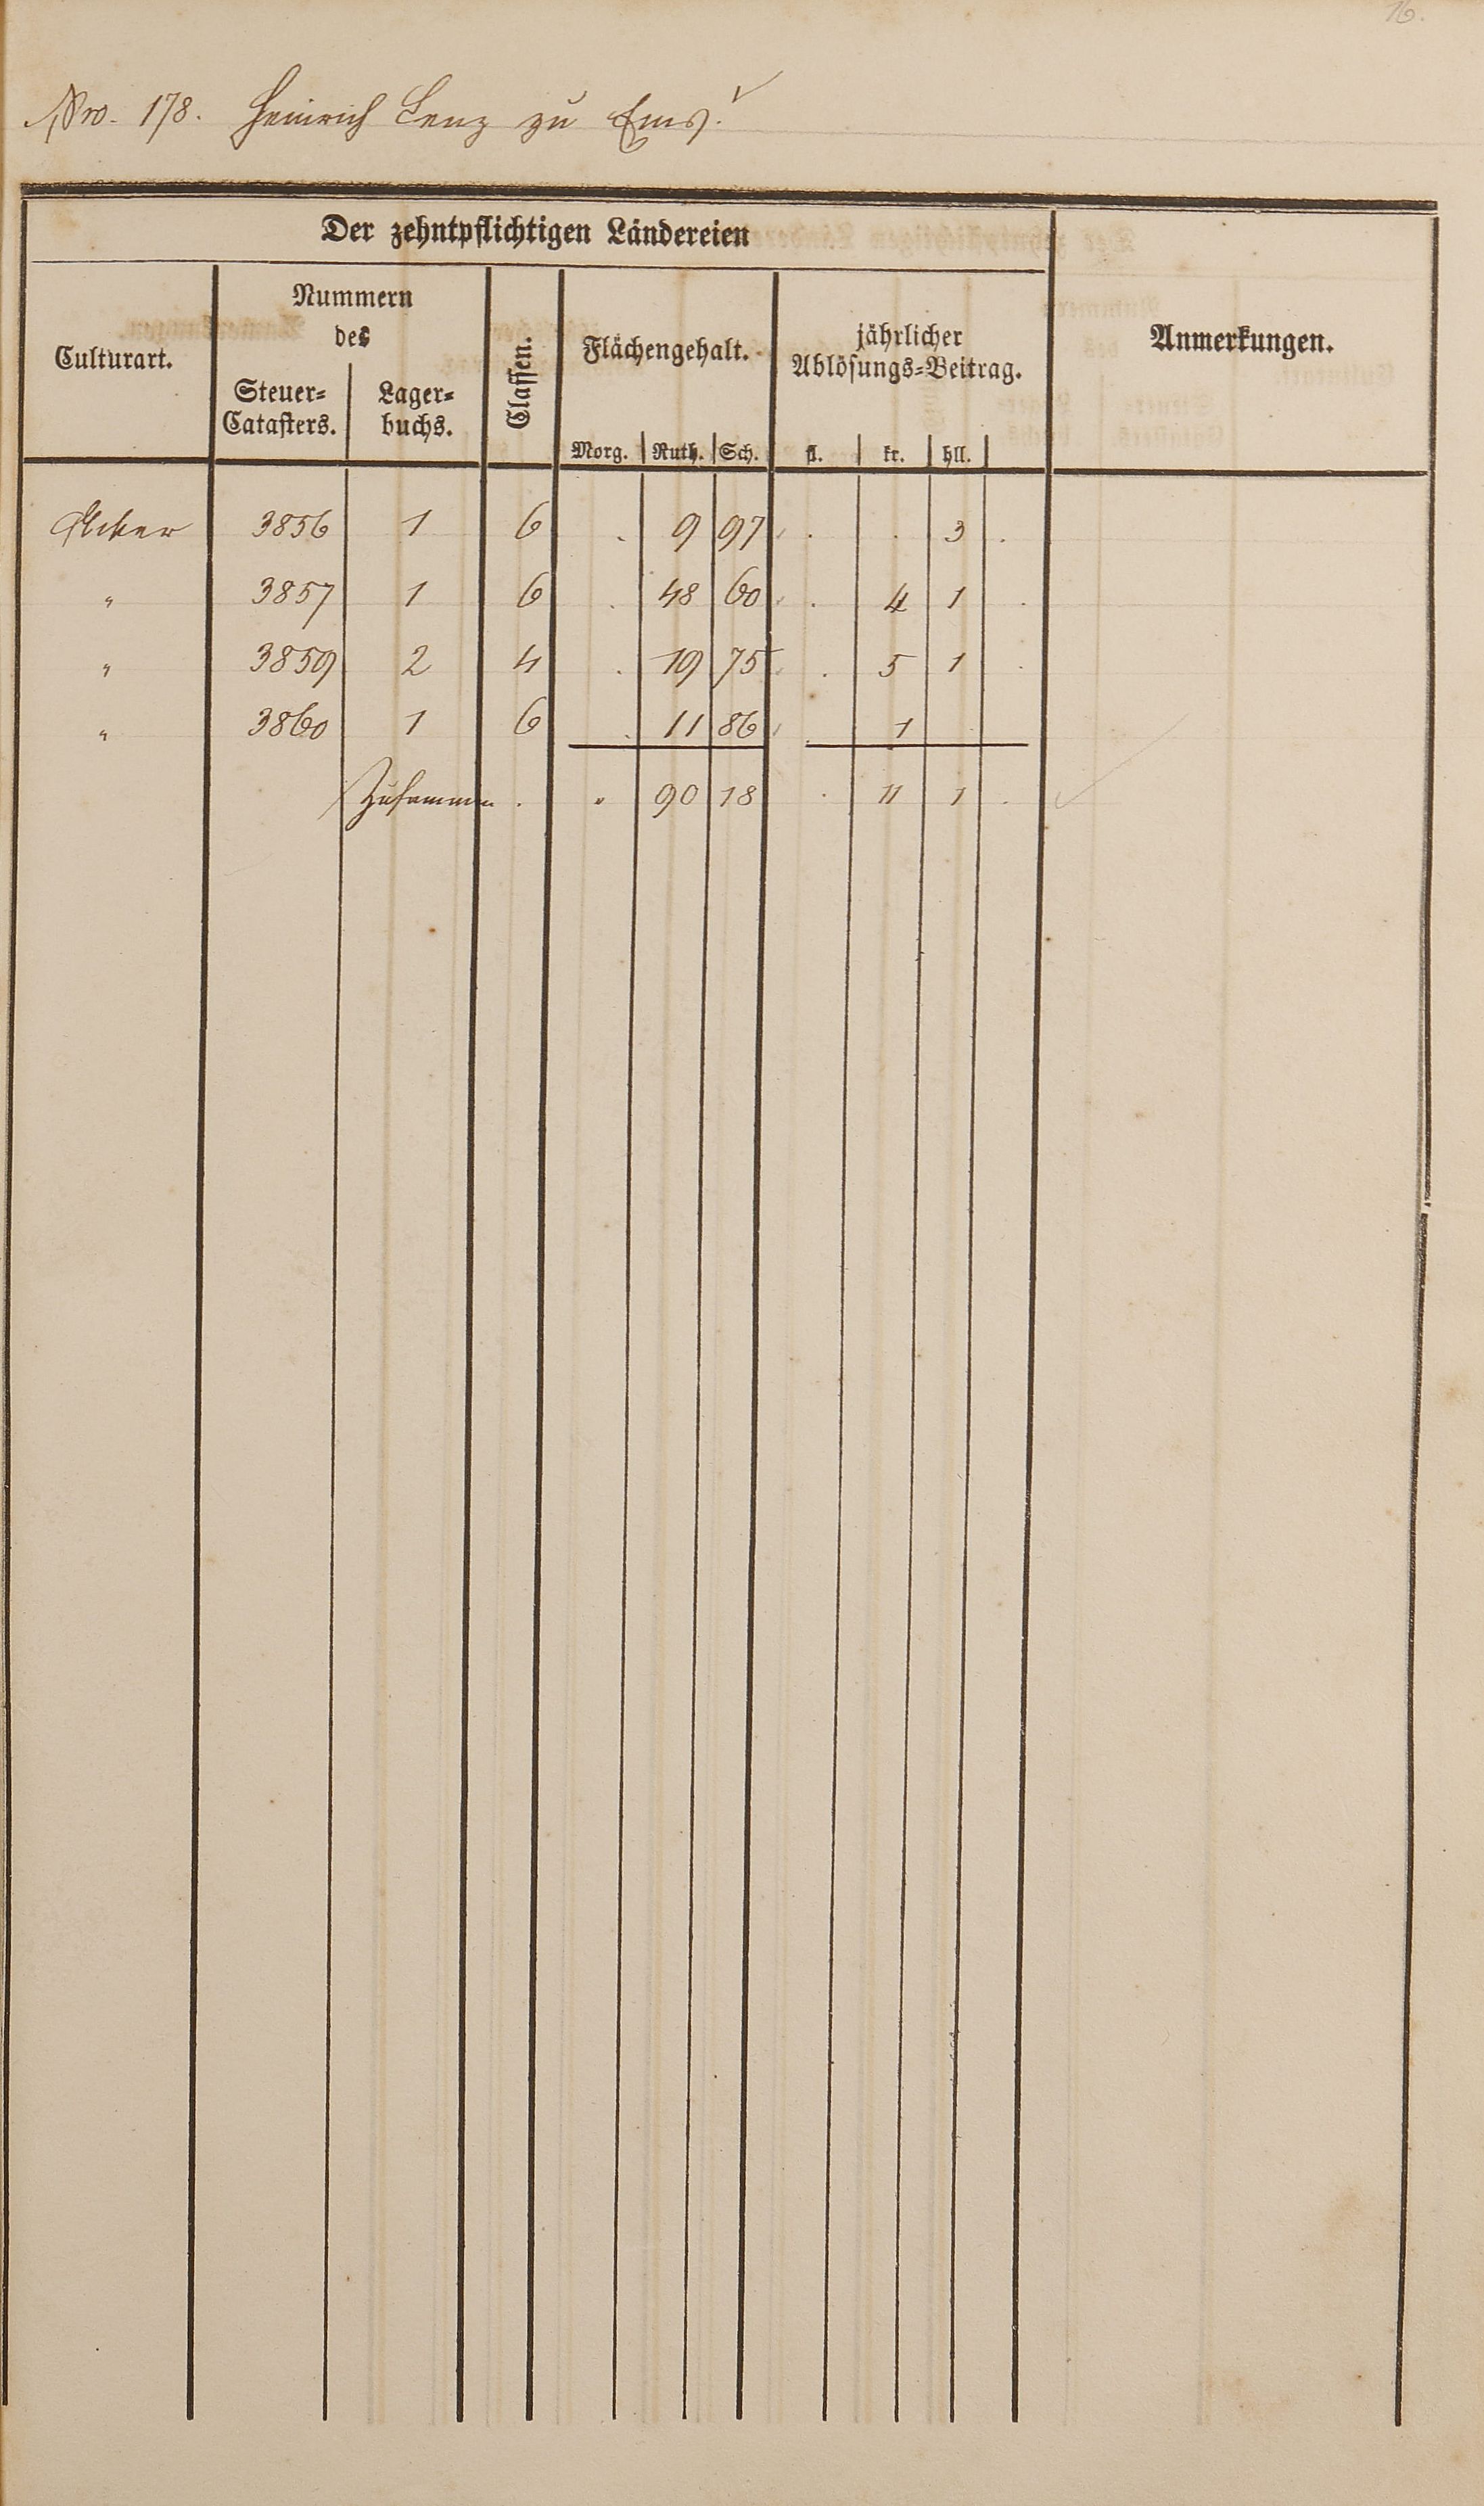 16.
Nro. 178. Heinrich Lenz zu Ems.
Der zehntpflichtigen Ländereien
Culturart.
Nummern
des
Steuer=
Catasters.
Lager=
buchs.
Classen.
Flächengehalt.
Morg. Ruth. Sch.
jährlicher
Ablösungs=Beitrag.
fl. kr. hll.
Anmerkungen.
Acker 3856 1 6 . 9 97 . . 3 .
" 3857 1 6 . 48 60 . 4 1 .
" 3859 2 4 . 19 75 . 5 1 .
" 3860 1 6 . 11 86 . 1
Zusammen . " 90 18 . 11 1 .